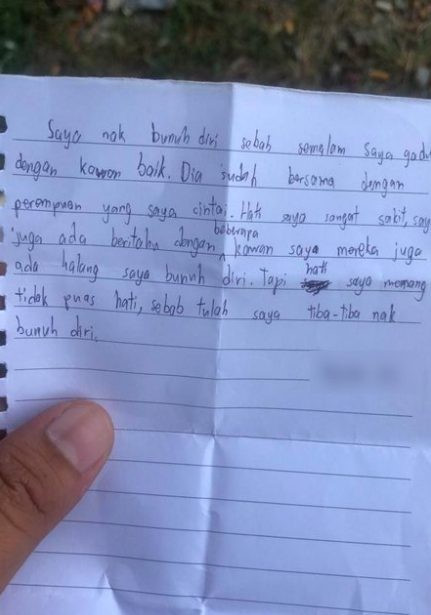 Saya nak bunuh diri sebab semalam saya gadu
dengan kawan baik. Dia sudah bersama dengan
perempuan yang saya cintai. Hati saya sangat sakit, saya
juga ada beritahu dengan beberapa kawan saya mereka juga
ada halang saya bunuh diri. Tapi hati saya memang
tidak puas hati, sebab tulah saya tiba-tiba nak
bunuh diri.